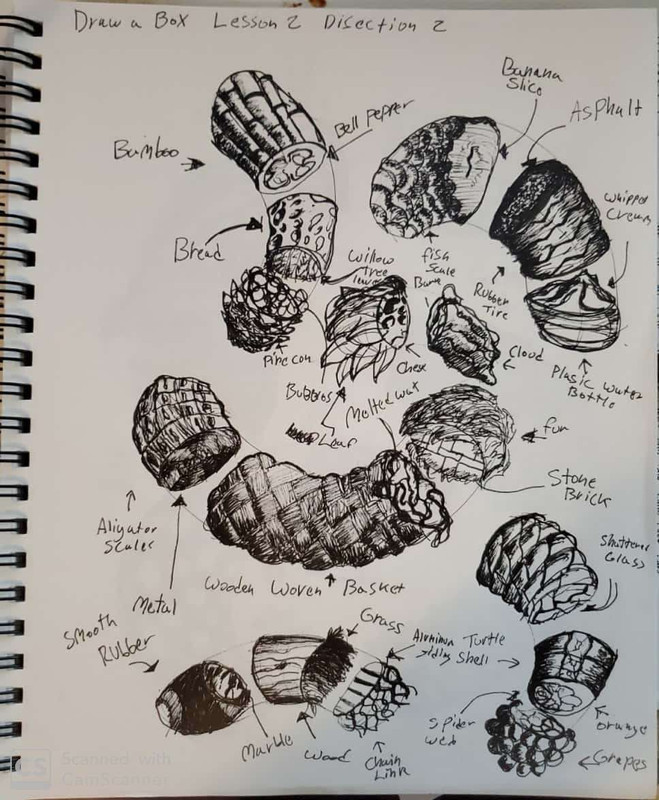 Draw a Box Lesson 2 Disection 2
Banana
Slice
Asphalt
Bell Pepper
Bamboo
Whipped
Cream
Bread
fish
Scale
Willow
Tree
Rubber
Tire
Pinecon
Cloud
Plasic Water
Bottle
Leaf
fur
Stone
Brick
Aligator
Scales
Wooden Woven Basket
Metal
Shattered
Glass
Smooth
Rubber
Grass
Aluminum Turtle
Siding Shell
Marble
Wood
Chain
Link
Spider
Web
Orange
Grapes
CS
Scanned with
CamScanner